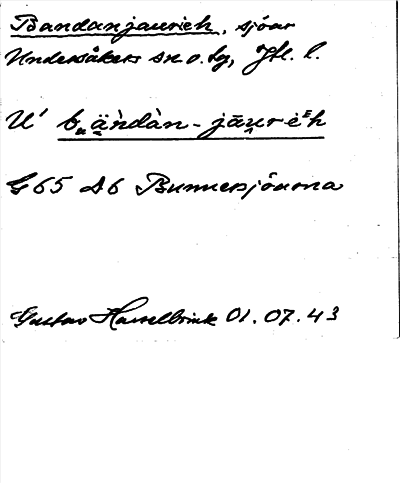 Bandanjaurieh, sjöar
Undersåkers sn o. hg, Jtl. l.
U' bạä̀ndàn-jāu̯rėᴱh
G65 A6 Bunnersjöarna
Gustav Hasselbrink 01.07.43